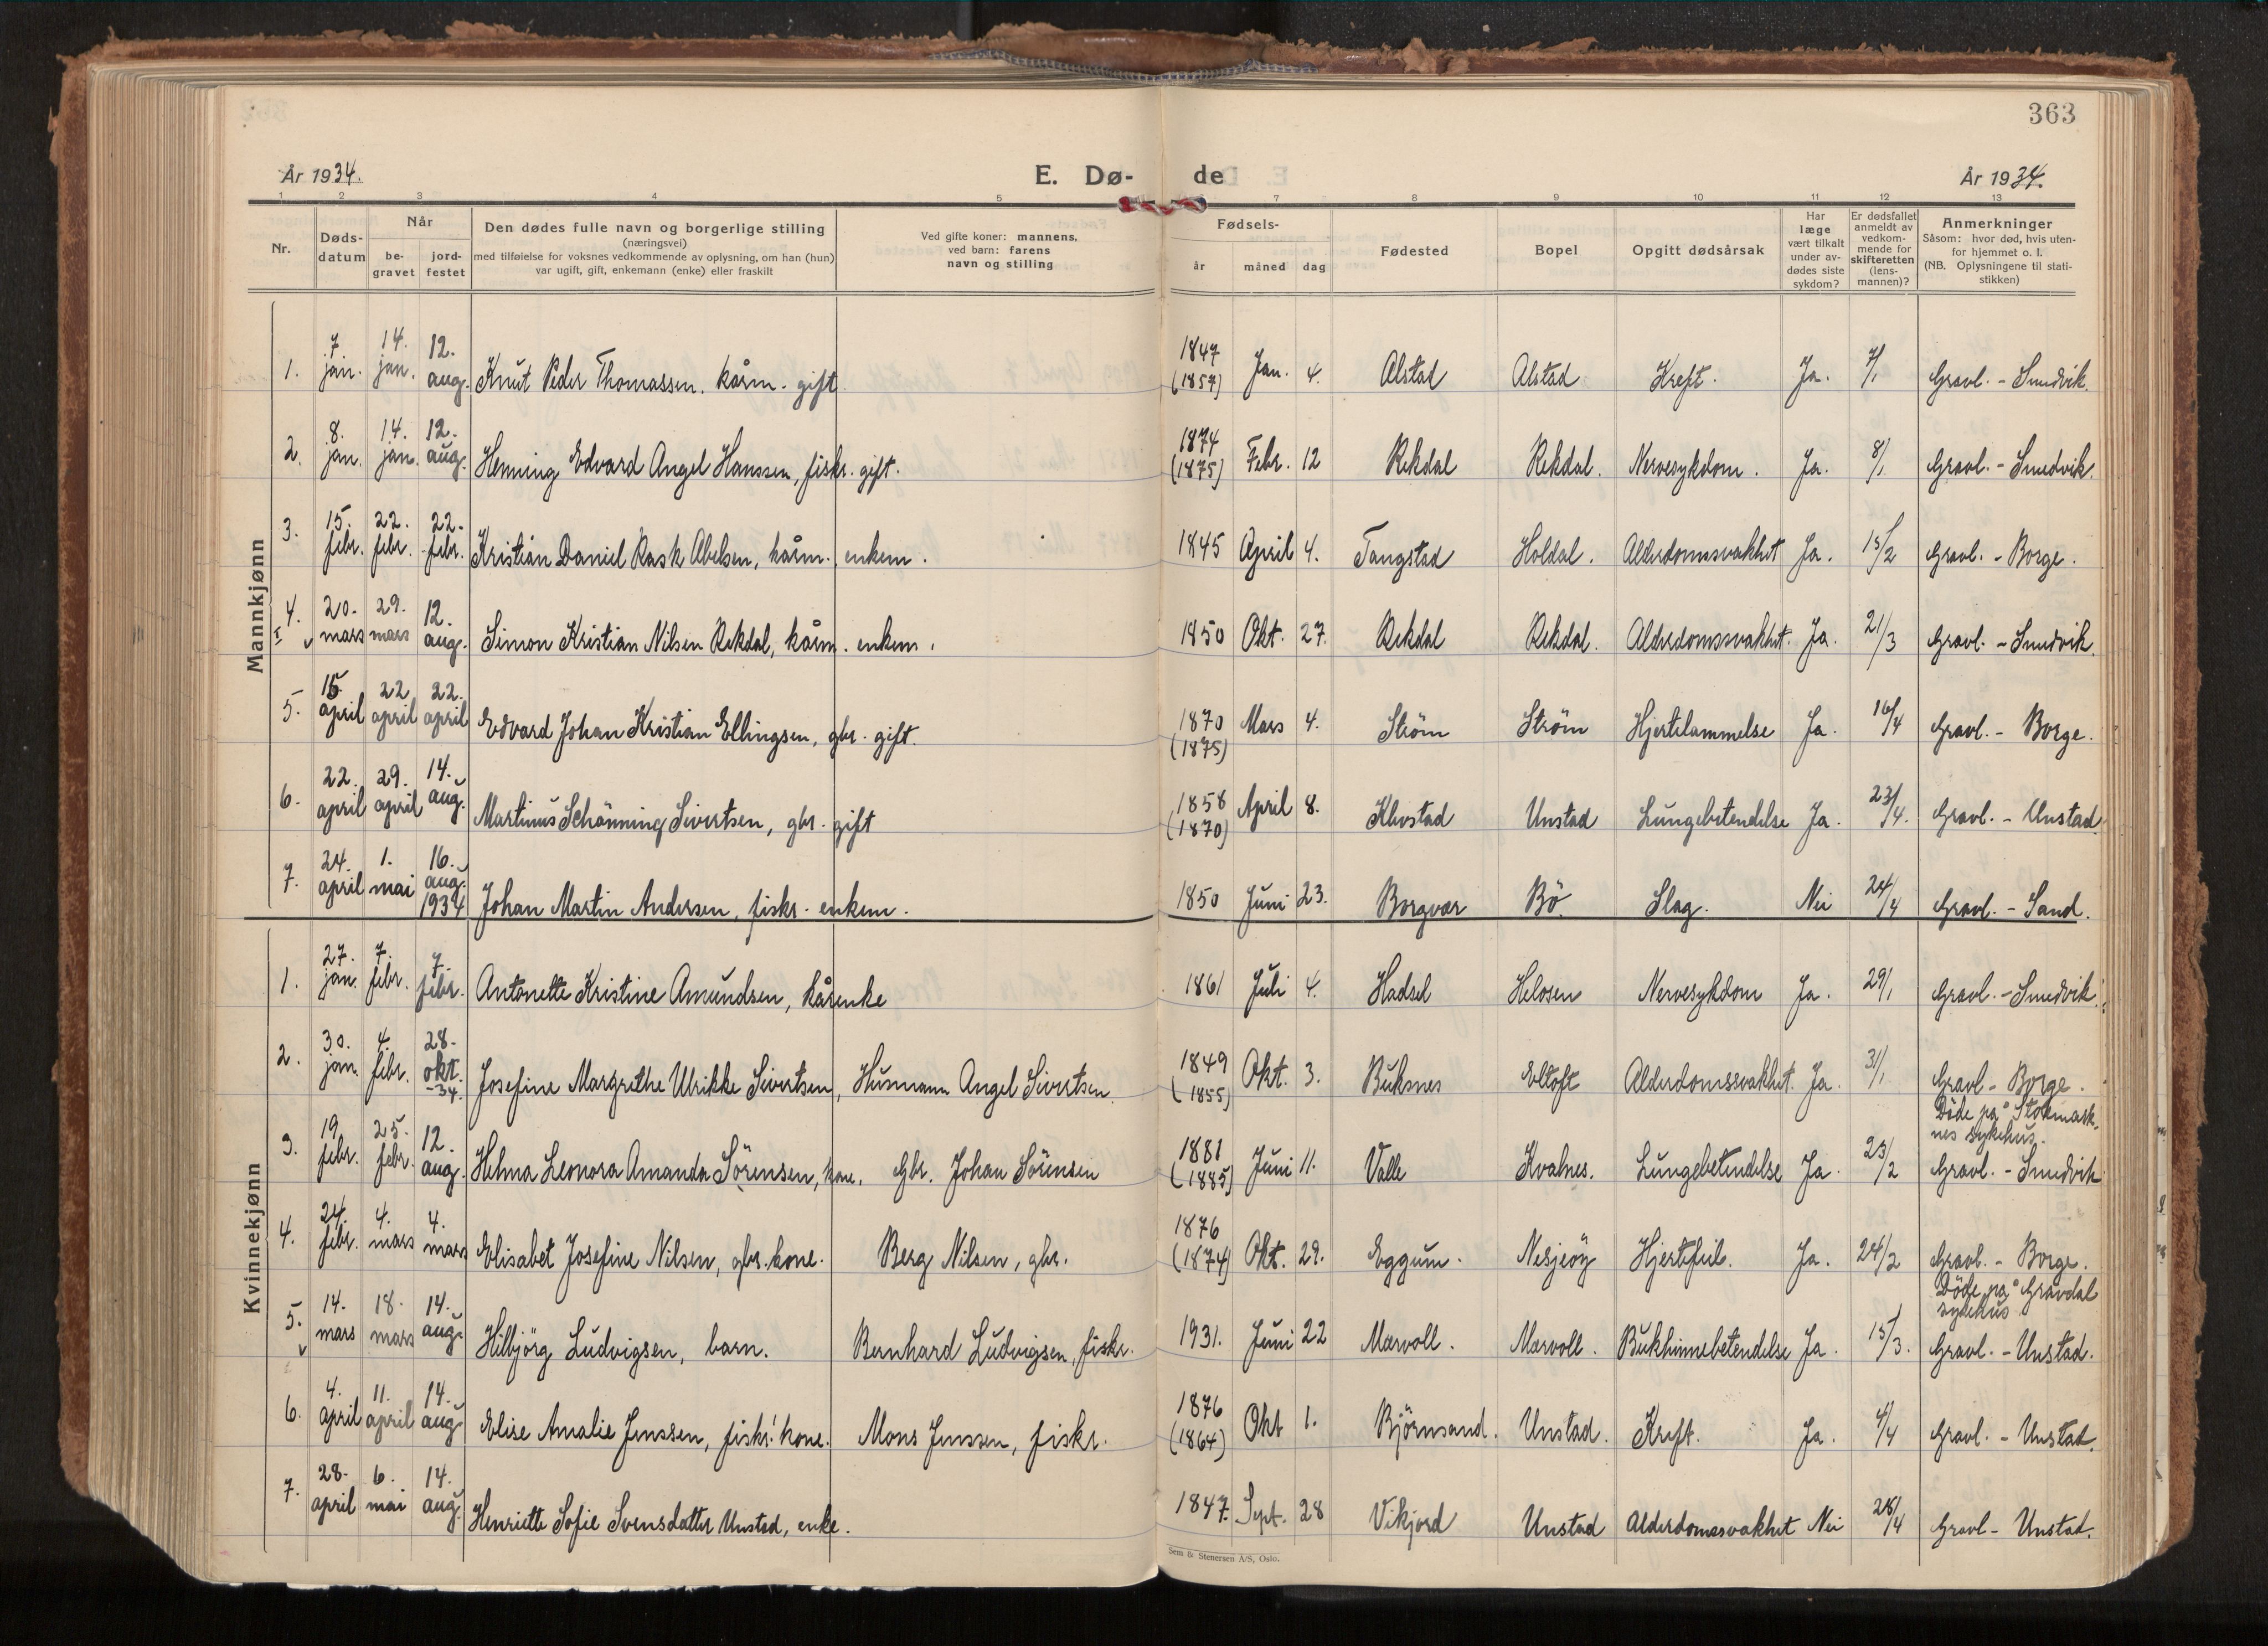 363
År 1934.
E. Dø-
de
År 1934.
1 2 3 4 5 7 8 9 10 11 12 13
Nr.
Døds-
datum
Når
be-
gravet
jord-
festet
Den dødes fulle navn og borgerlige stilling
(næringsvei)
med tilføielse for voksnes vedkommende av oplysning, om han (hun)
var ugift, gift, enkemann (enke) eller fraskilt
Ved gifte koner: mannens,
ved barn: farens
navn og stilling
Fødsels-
år
måned
dag
Fødested
Bopel
Opgitt dødsårsak
Har
læge
vært tilkalt
under av-
dødes siste
sykdom?
Er dødsfallet
anmeldt av
vedkom-
mende for
skifteretten
(lens-
mannen)?
Anmerkninger
Såsom: hvor død, hvis uten-
for hjemmet o. l.
(NB. Oplysningene til stati-
stikken)
Mannkjønn
1. 7. jan. 14. jan. 12. aug. Knut Peder Thomassen, kårm. gift 1847 (1857) Jan. 4. Alstad Alstad Kreft. Ja. 7/1 Gravl. - Smedvik.
2. 8. jan. 14. jan. 12. aug. Henning Edvard Angel Hanssen, fiskr. gift. 1874 (1875) Febr. 12 Rekdal Rekdal. Nervesykdom. Ja. 8/1 Gravl. - Smedvik.
3. 15. febr. 22. febr. 22. febr. Kristian Daniel Rask Abelsen, kårm., enkem. 1845 April 4. Tangstad Holdal. Alderdomssvakhet Ja. 15/2 Gravl. - Borge.
4. 20. mars 29. mars 12. aug. Simon Kristian Nilsen Rekdal, kårm. enkem. 1850 Okt. 27. Rekdal Rekdal. Alderdomssvakhet. Ja. 21/3 Gravl. - Smedvik.
5. 15. april 22 april 22. april Edvard Johan Kristian Ellingsen, gbr. gift. 1870 (1875) Mars 4. Strøm Strøm Hjertelammelse Ja. 16/4 Gravl. - Borge.
6. 22. april 29. april 14. aug. Martinus Schånning Sivertsen, gbr. gift 1858 (1870) April 8. Klevstad Unstad Lungebetendelse Ja. 23/4. Gravl. - Unstad
7. 24. april 1. mai 16. aug. 1934 Johan Martin Andersen, fiskr. enkem. 1850 Juni 23. Borgvær Bö. Slag. Nei 24/4 Gravl. - Sand.
Kvinnekjønn
1. 27. jan. 7. febr. 7. febr. Antonette Kristine Amundsen, kårenke 1861 Juli 4. Hadsel Helosen Nervesykdom Ja. 29/1 Gravl. - Smedvik.
2. 30. jan. 4. febr. 28. okt. -34. Josefine Margrethe Ulrikke Sivertsen, Husmann Angel Sivertsen. 1849 (1855) Okt. 3. Buksnes Eltoft Alderdomssvakhet. Ja. 31/1 Gravl - Borge.
3. 19. febr. 25. febr. 12. aug. Helma Leonora Amanda Sörensen, kone. Gbr. Johan Sörensen 1881 (1885) Juni 11. Valle Kvalnes. Lungebetendelse Ja. 23/2 Döde på Stokmark-
nes sykehus.
Gravl. - Smedvik
4. 24. febr. 4. mars 4. mars Elisabet Josefine Nilsen, gbr. kone. Berg Nilsen, gbr. 1876 (1874) Okt. 29. Eggum. Nesjeöy Hjertefeil. Ja. 24/2 Gravl. - Borge.
5. 14. mars 18. mars 14. aug. Hilbjörg Ludvigsen, barn. Bernhard Ludvigsen, fiskr. 1931. Juni 22 Mærvoll. Mærvoll. Bukhinnebetendelse Ja. 15/3. Döde på Gravdal
sykehus
Gravl. - Unstad.
6. 4. april 11. april 14. aug. Elise Amalie Jenssen, fiskr. kone. Mons Jenssen, fiskr. 1876 (1864) Okt 1. Björnsand. Unstad. Kreft. Ja. 4/4 Gravl. - Unstad.
7. 28. april 6. mai 14. aug. Henriette Sofie Svensdatter Unstad, enke. 1847. Sept. 28 Vikjord Unstad Alderdomssvakhet Nei 28/4 Gravl - Unstad.
Sem & Stenersen A/S, Oslo.